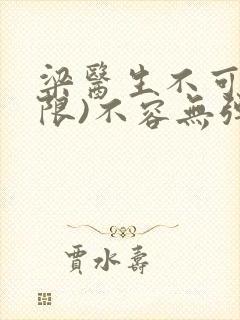 梁醫生不可
限)不容無
賈水壽